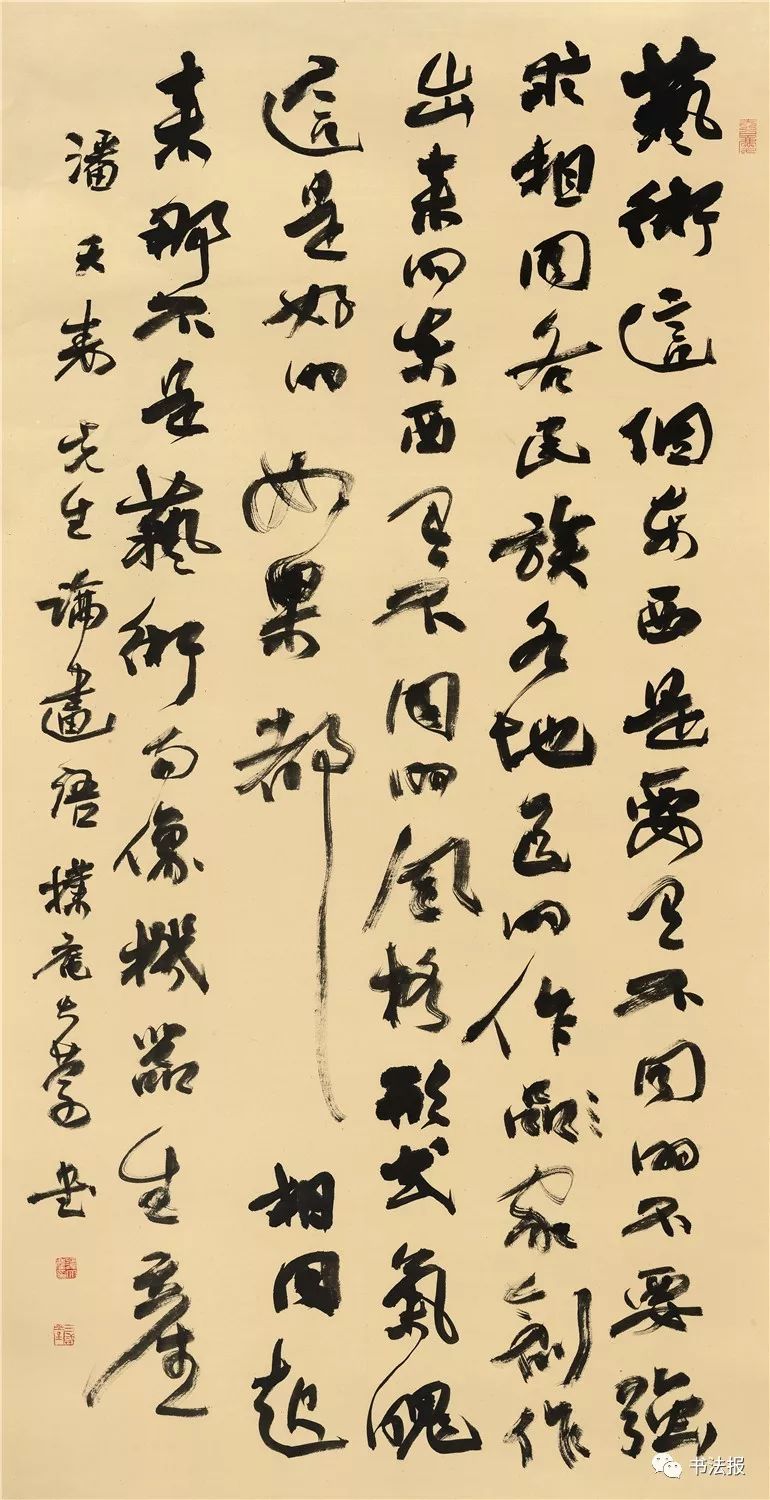 藝術這個東西是要有不同的不要強
求相同各民族各地區的作品家創作
出來的東西有不同的風格形式氣魄
這是好的如果都相同起
來那不是藝術而像機器生產
潘天壽先生論畫語樸庵書
书法报